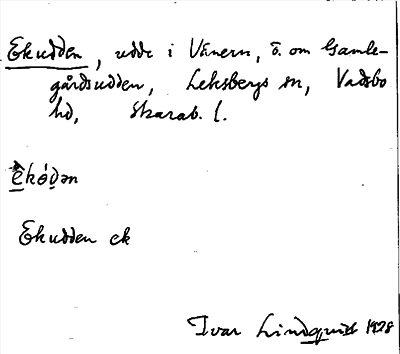 Ekudden, udde i Vänern, ö. om Gamle-
gårdsudden, Leksbergs sn, Vadsbo
hd, Skarab. l.
èkódən
Ekudden ek
Ivar Lindquist 1928